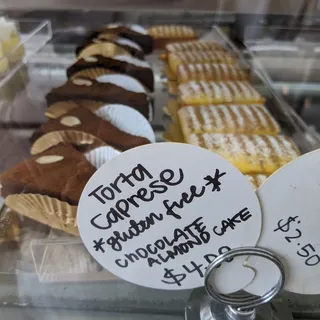 Torta
Caprese
*gluten free*
CHOCOLATE
ALMOND CAKE
$4.00
$2.50